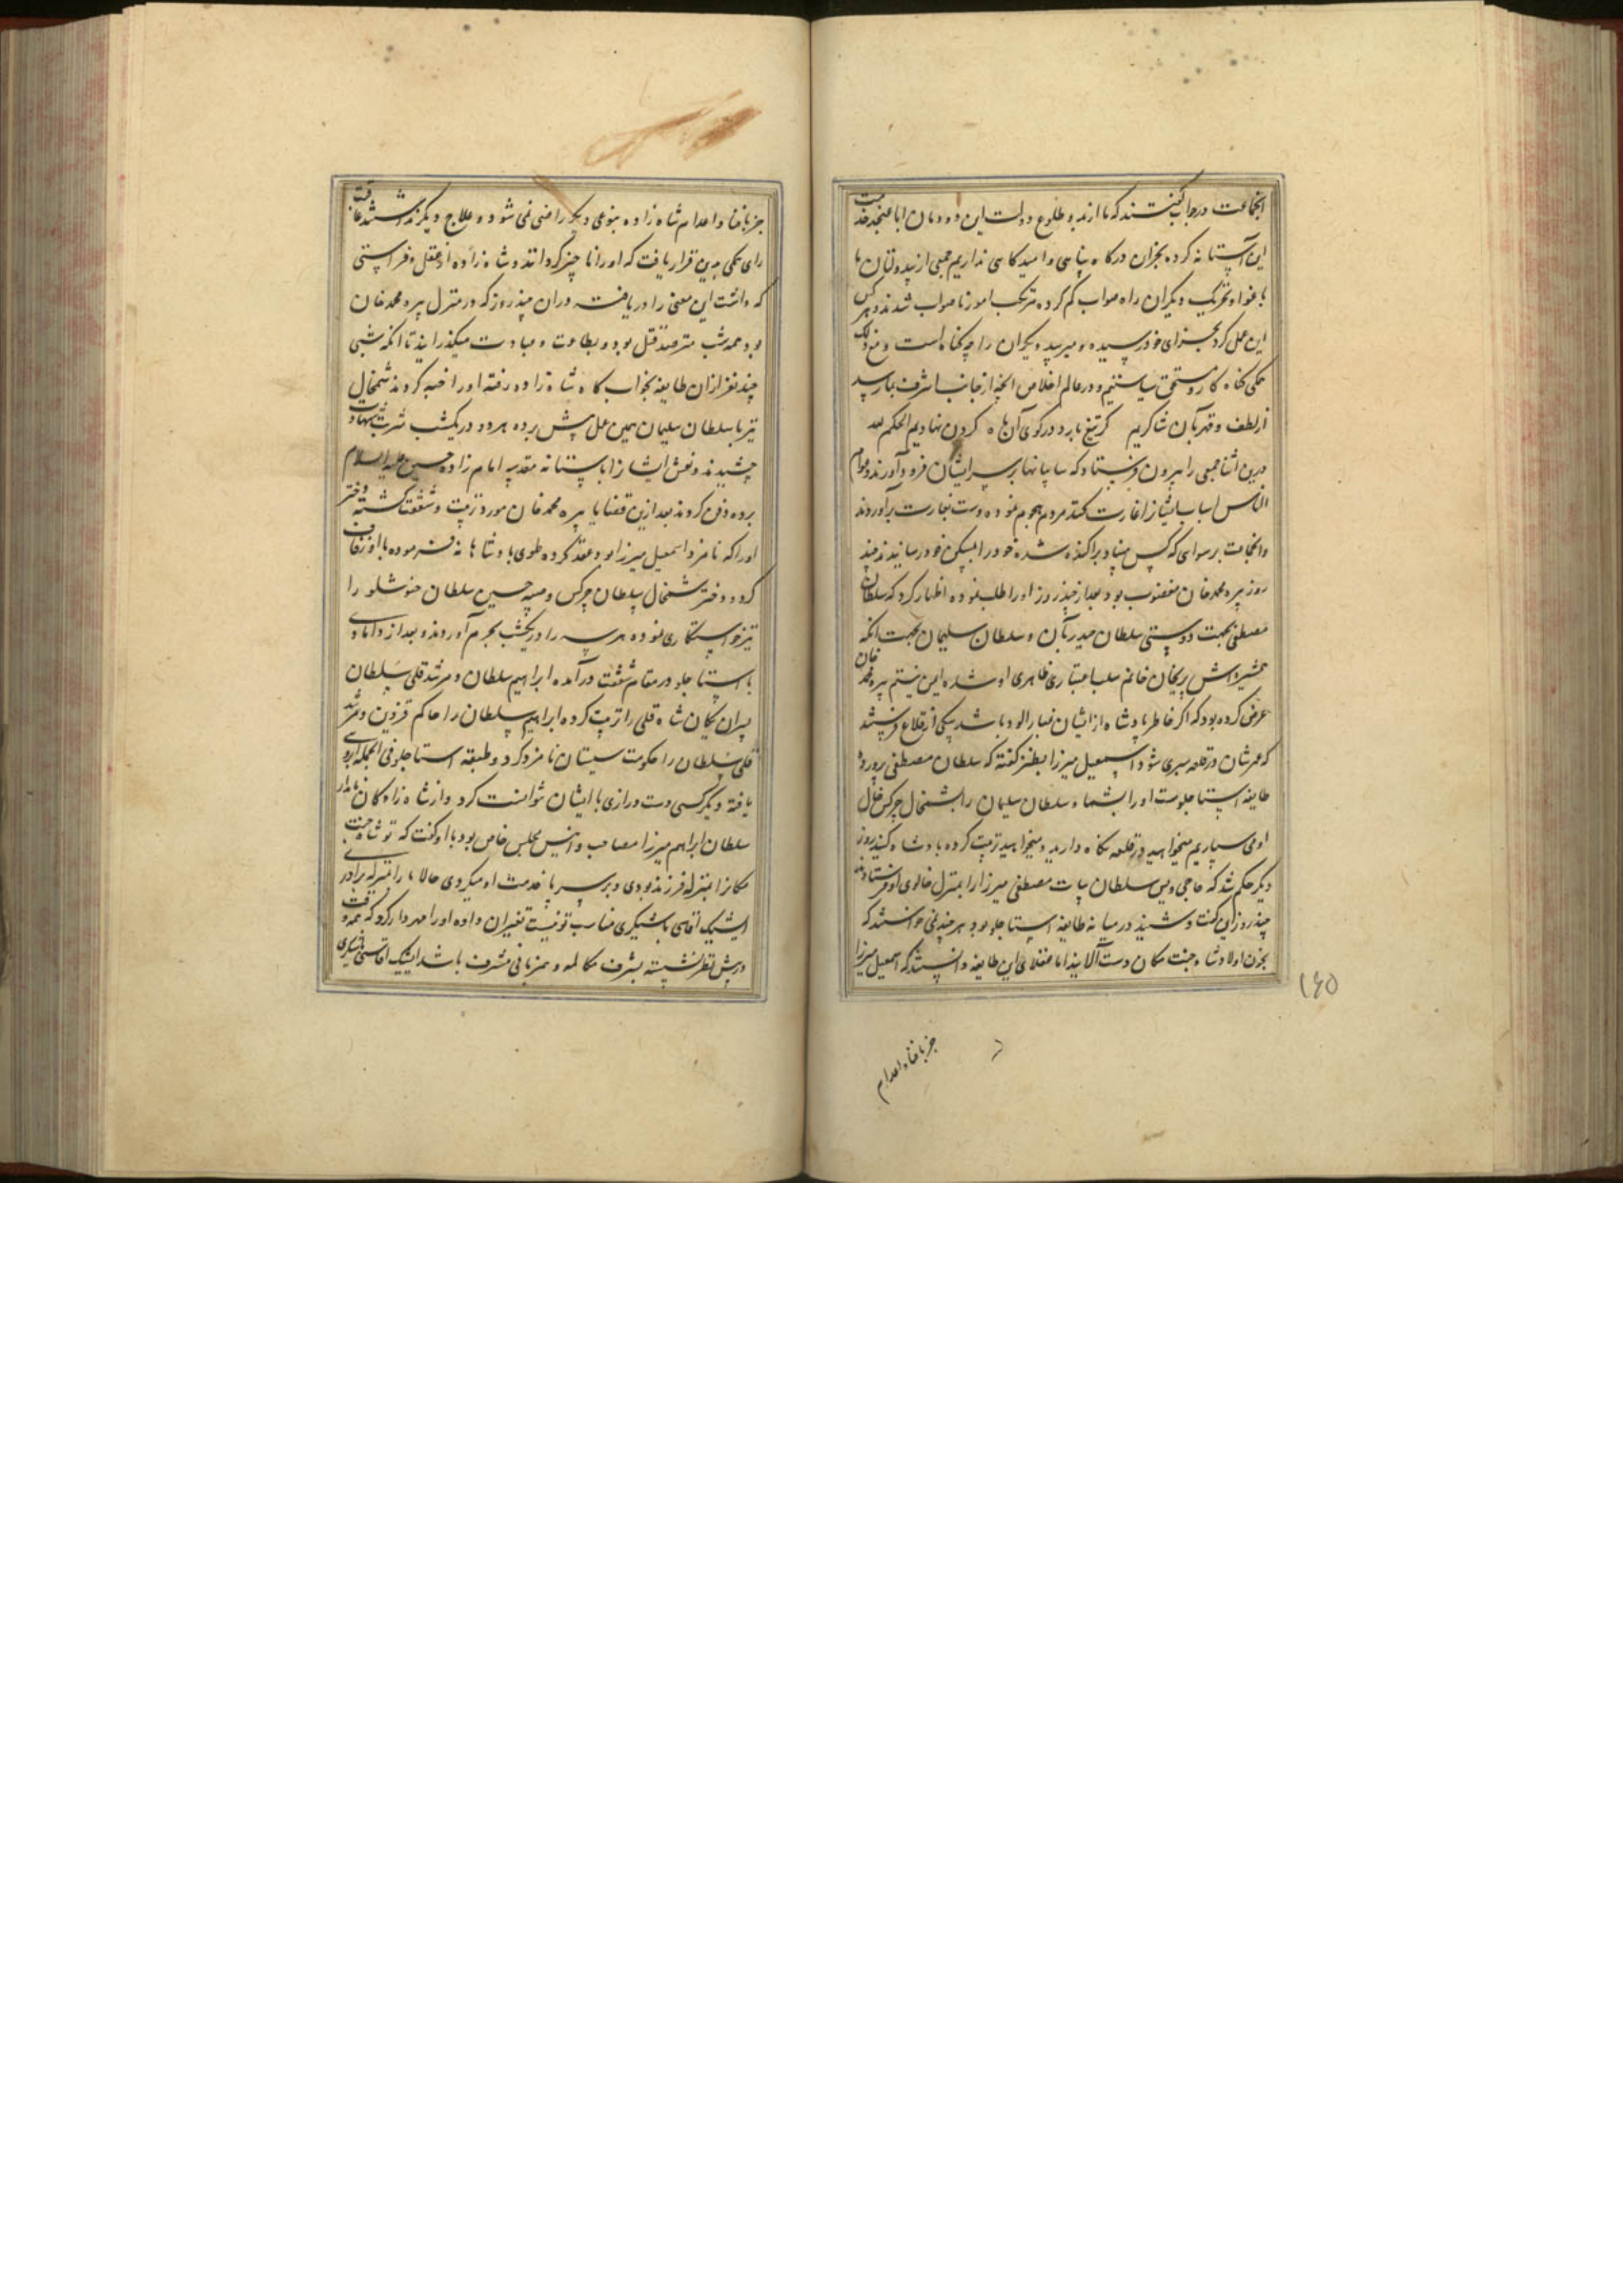 انجماعت در جواب گفتند که ما از بدو طلوع دولت این دودمان ابا عنجد خدمت
این آستانه کرده بجز این درگاه پناهی و امیدگاهی نداریم جمعی از بیدولتان ما
باغوا و تحریک دیگران راه صواب گم کرده مرتکب امور ناصواب شدند و هر کس
این عمل کرد بجزای خود رسیده و میرسد دیگران را چه گناه است و مع ذلک
همگی گناه کار و مستحق سیاستیم و در عالم اخلاص آنچه از جانب اشرف بما رسد
از لطف و قهر بآن شاکریم گر تیغ بارد در کوی آن ماه گردن نهادیم الحکم لله
درین اثنا جمعی را بیرون فرستاد که سایبانها بر سر ایشان فرود آورند و عوام
الناس اسباب ایشانرا غارت کنند مردم هجوم نموده دست بغارت برآوردند
و انجماعت برسوائی که کس مبیناد پراکنده شده خود را بمسکن خود رسانیدند چند
روز پیره محمد خان مغضوب بود بعد از چند روز او را طلب نموده اظهار کرد که سلطان
مصطفی بجهت دوستی سلطان حیدر بآن و سلطان سلیمان بجهت آنکه
همشیره‌اش پریخان خانم سلب اعتباری ظاهری او شده ایمن نیستم پیره محمد خان
عرض کرده بود که اگر خاطر پادشاه از ایشان غبار آلود باشد بیکی از قلاع فرستند
که عمرشان در قلعه سپری شود اسمعیل میرزا بطنز گفته که سلطان مصطفی پرورده
طایفه استاجلوست او را بشما و سلطان سلیمان را بشمخال چرکس خال
او می سپاریم میخواهید در قلعه نگاه دارید و میخواهید تربیت کرده پادشاه کنید روز
دیگر حکم شد که حاجی ویس سلطان بیات مصطفی میرزا را بمنزل خالوی او فرستادند
چند روز این گفت و شنید در میانه طایفه استاجلو بود هر چند نمی خواستند که
بخون اولاد شاه جنت مکان دست آلایند اما عقلای این طایفه دانستند که اسمعیل میرزا
۱۶۵
جز بافنا و اعدام
جز بافنا و اعدام شاه زاده بنوعی دیگر راضی نمی شود و علاج دیگر نداشتند عاقبت
رای همگی بدین قرار یافت که او را ناچیز گردانند و شاه زاده از عقل و فراستی
که داشت این معنی را دریافت در آن چند روز که در منزل پیره محمد خان
بود همه شب مترصد قتل بود و بطاعت و عبادت میگذرانید تا آنکه شبی
چند نفر از آن طایفه بخوابگاه شاه زاده رفته او را خبه کردند شمخال
نیز با سلطان سلیمان همین عمل پیش برده هر دو در یکشب شربت شهادت
چشیدند و نعش ایشانرا باستانه مقدسه امام زاده حسین علیه السلام
برده دفن کردند بعد ازین قضایا پیره محمد خان مورد تربیت و شفقت گشته دختر
او را که نامزد اسمعیل میرزا بود عقد کرده طوی پادشاهانه فرموده با او زفاف
کرد و دختر شمخال سلطان چرکس و صبیه حسین سلطان خنوسلو را
نیز خواستگاری نموده هر سه را در یکشب بحرم آوردند و بعد از دامادی
با استاجلو در مقام شفقت درآمده ابراهیم سلطان و مرشد قلی سلطان
پسران یکان شاه قلی را تربیت کرده ابراهیم سلطان را حاکم قزوین و مرشد
قلی سلطان را حکومت سیستان نامزد کرد و طبقه استاجلو فی الجمله آبروی
یافته دیگر کسی دست درازی با ایشان نتوانست کرد و از شاه زادگان نامدار
سلطان ابراهیم میرزا مصاحب و انیس مجلس خاص بود با او گفت که تو شاه جنت
مکانرا بمنزله فرزند بودی و بر سر پا خدمت او میکردی حالا ما را بمنزله برادری
ایشیک آقاسی باشیگری مناسب تو نیست تغییر آن داده او را مهردار کرد که همه وقت
در پیش نظر نشسته بشرف مکالمه و همزبانی مشرف باشد ایشیک آقاسی باشیگری